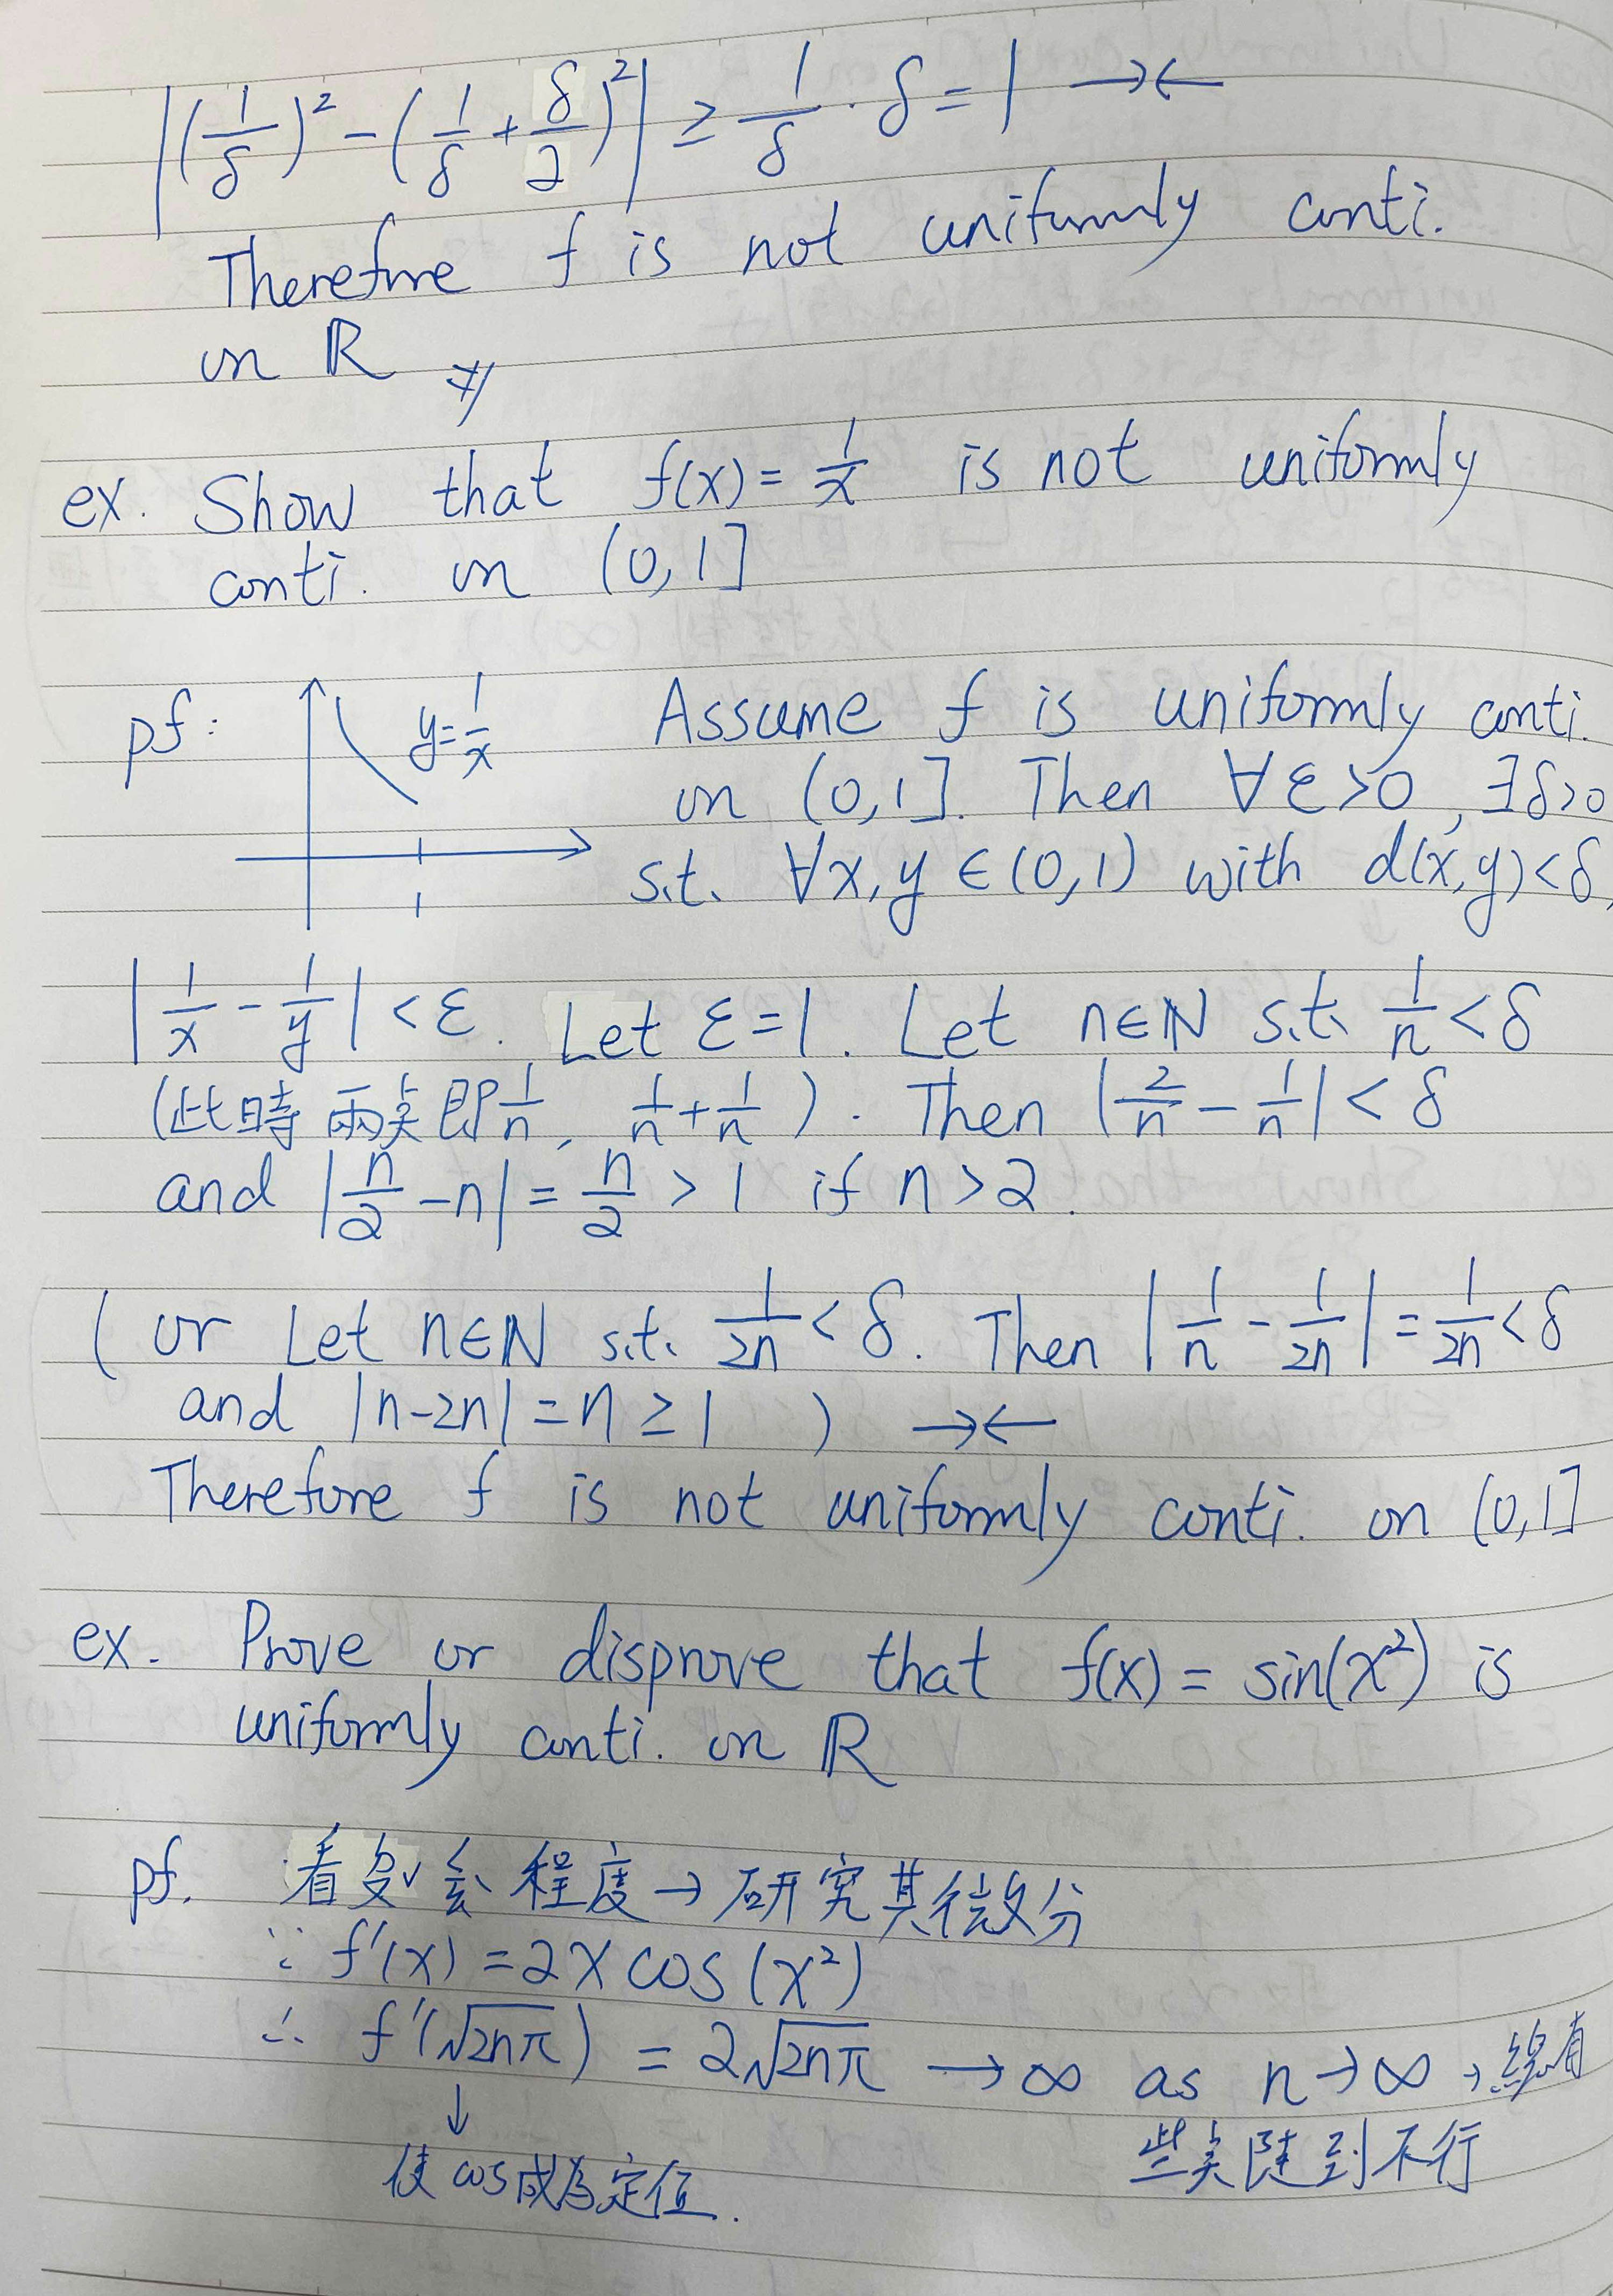 |(1/δ)² - (1/δ + δ/2)²| ≥ 1/δ · δ = 1 →←
Therefore f is not uniformly conti.
on ℝ
ex. Show that f(x) = 1/x is not uniformly
conti. on (0,1]
pf: y=1/x Assume f is uniformly conti.
on (0,1]. Then ∀ε>0, ∃δ>0
1 s.t. ∀x,y ∈(0,1) with d(x,y)<δ,
|1/x - 1/y| < ε. Let ε=1. Let n∈ℕ s.t. 1/n < δ
(此時兩点即1/n, 1/n+1/n). Then |2/n - 1/n| < δ
and |n/2 - n| = n/2 > 1 if n>2.
(or Let n∈ℕ s.t. 1/2n < δ. Then |1/n - 1/2n| = 1/2n < δ
and |n-2n| = n ≥ 1 ) →←
Therefore f is not uniformly conti. on (0,1]
ex. Prove or disprove that f(x) = sin(x²) is
uniformly conti. on ℝ
pf. 看劇烈程度→研究其微分
∵ f'(x) = 2x cos(x²)
∴ f'(√2nπ) = 2√2nπ → ∞ as n→∞, 總有
↓ 些点陡到不行
使cos成為定值.